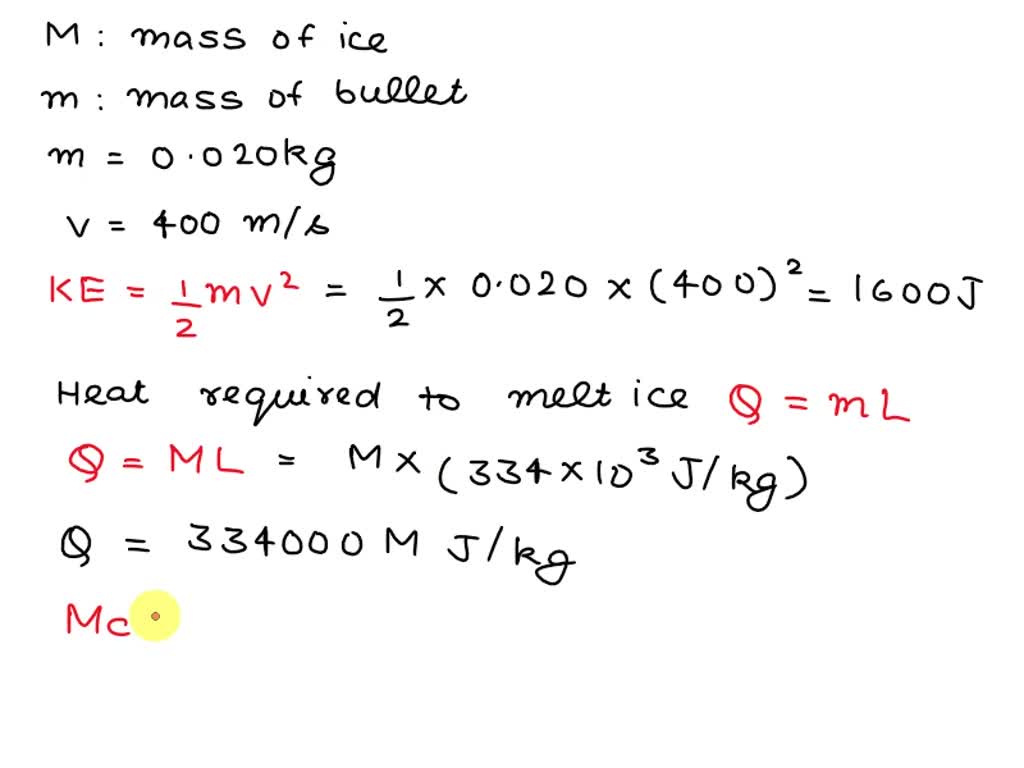 M : mass of ice
m : mass of bullet
m = 0.020kg
v = 400 m/s
KE = 1/2 mv² = 1/2 × 0.020 × (400)² = 1600J
Heat required to melt ice Q = mL
Q = ML = M× (334×10³ J/kg)
Q = 334000 M J/kg
Mc